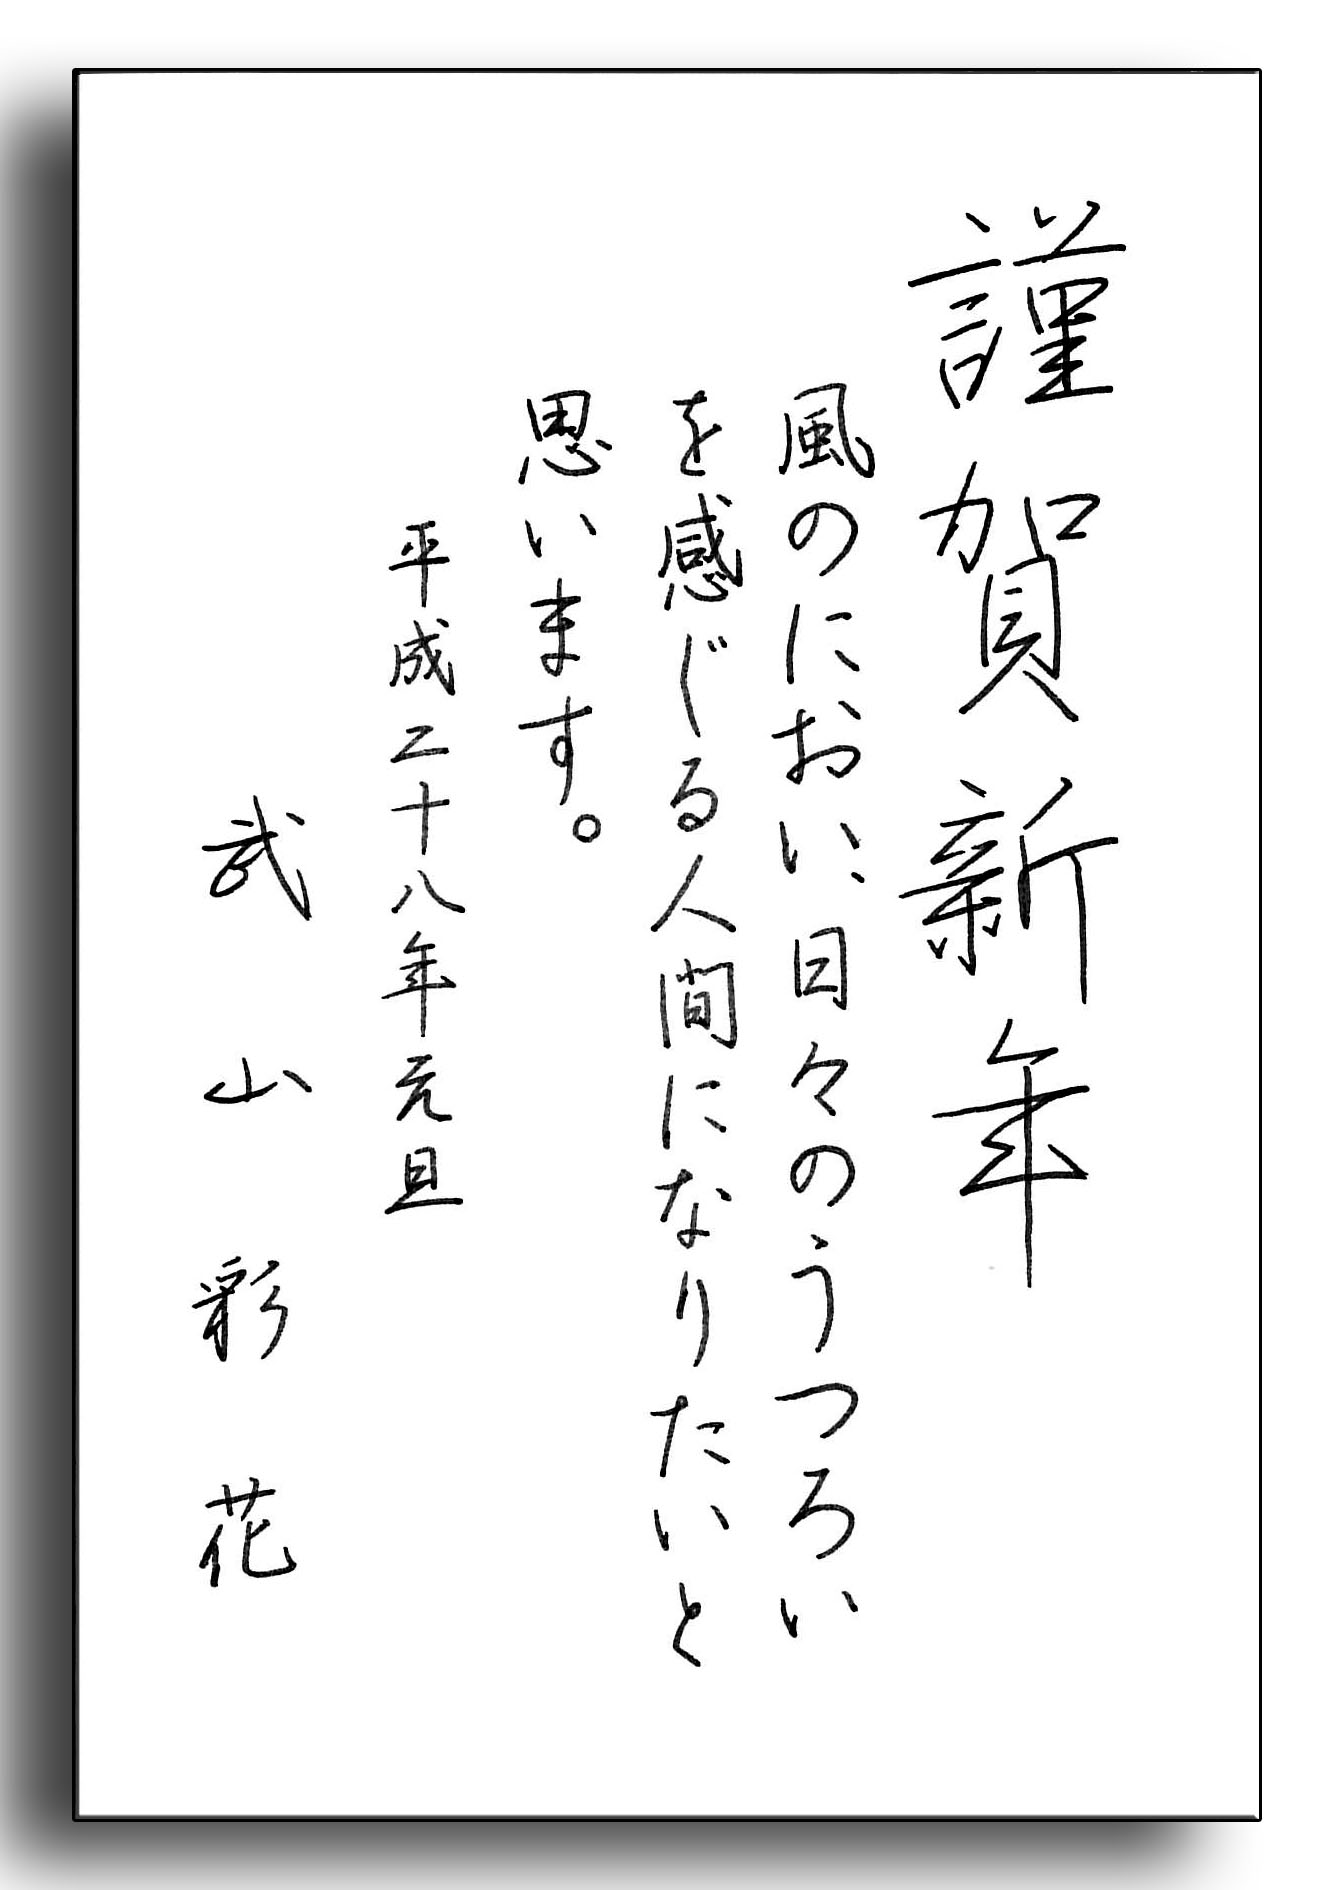 謹賀新年
風のにおい、日々のうつろい
を感じる人間になりたいと
思います。
平成二十八年元旦
武山彩花